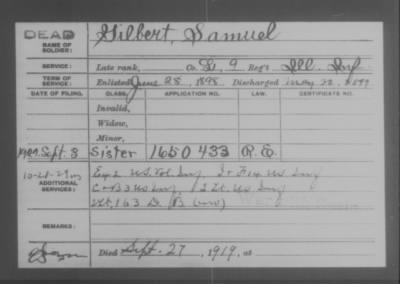 DEAD
NAME OF SOLDIER: Gilbert, Samuel
SERVICE: Late rank, Co. G, 9 Reg't Ill. Inf.
TERM OF SERVICE: Enlisted June 28, 1898. Discharged May 1899
DATE OF FILING. CLASS. APPLICATION NO. LAW. CERTIFICATE NO.
Invalid,
Widow,
Minor,
Sept. 3 Sister 1650433
ADDITIONAL SERVICES: U.S. Vol. Inf. US Inf
US Inf, 2 Lt. US Inf
163 D. B
REMARKS:
Died Sept. 27, 1919, at